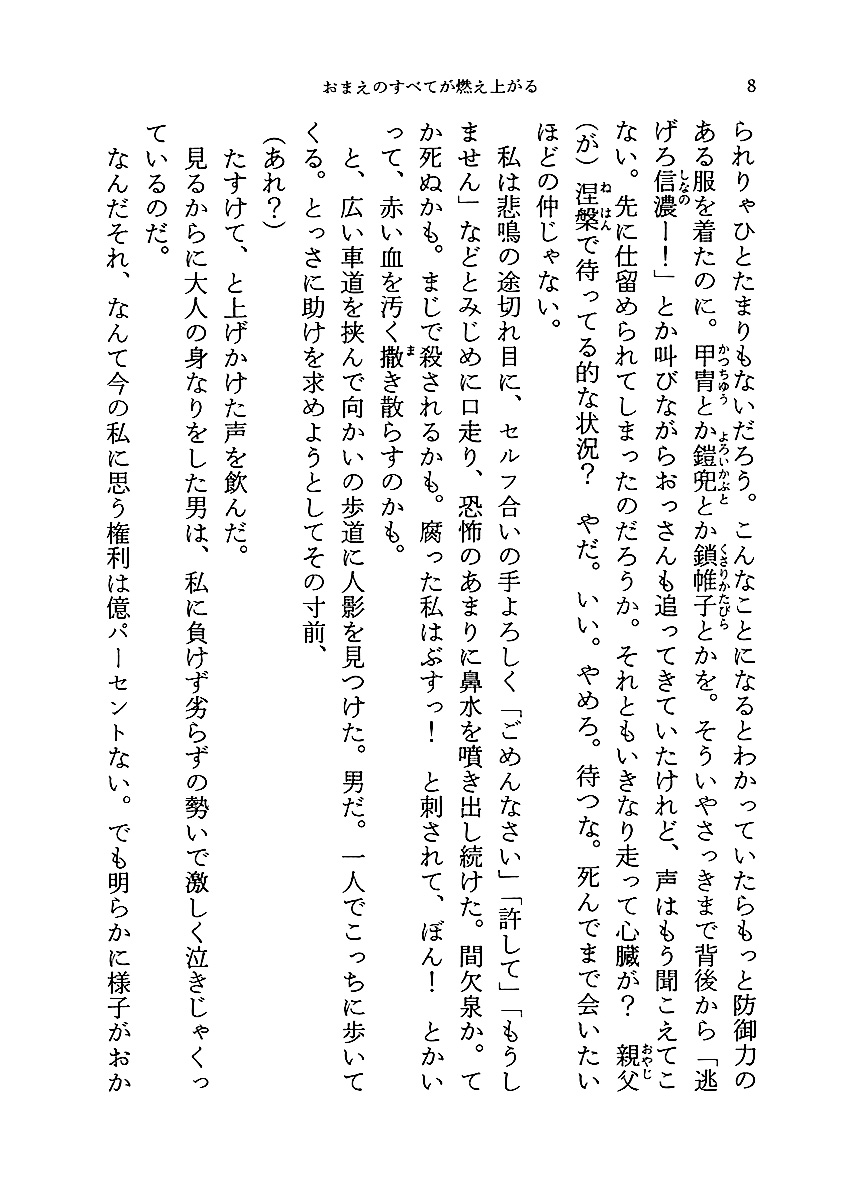 おまえのすべてが燃え上がる
8
られりゃひとたまりもないだろう。こんなことになるとわかっていたらもっと防御力の
ある服を着たのに。甲冑とか鎧兜とか鎖帷子とかを。そういやさっきまで背後から「逃
げろ信濃ー！」とか叫びながらおっさんも追ってきていたけれど、声はもう聞こえてこ
ない。先に仕留められてしまったのだろうか。それともいきなり走って心臓が？　親父
（が）涅槃で待ってる的な状況？　やだ。いい。やめろ。待つな。死んでまで会いたい
ほどの仲じゃない。
　私は悲鳴の途切れ目に、セルフ合いの手よろしく「ごめんなさい」「許して」「もうし
ません」などとみじめに口走り、恐怖のあまりに鼻水を噴き出し続けた。間欠泉か。て
か死ぬかも。まじで殺されるかも。腐った私はぶすっ！　と刺されて、ぼん！　とかい
って、赤い血を汚く撒き散らすのかも。
　と、広い車道を挟んで向かいの歩道に人影を見つけた。男だ。一人でこっちに歩いて
くる。とっさに助けを求めようとしてその寸前、
（あれ？）
　たすけて、と上げかけた声を飲んだ。
　見るからに大人の身なりをした男は、私に負けず劣らずの勢いで激しく泣きじゃくっ
ているのだ。
　なんだそれ、なんて今の私に思う権利は億パーセントない。でも明らかに様子がおか